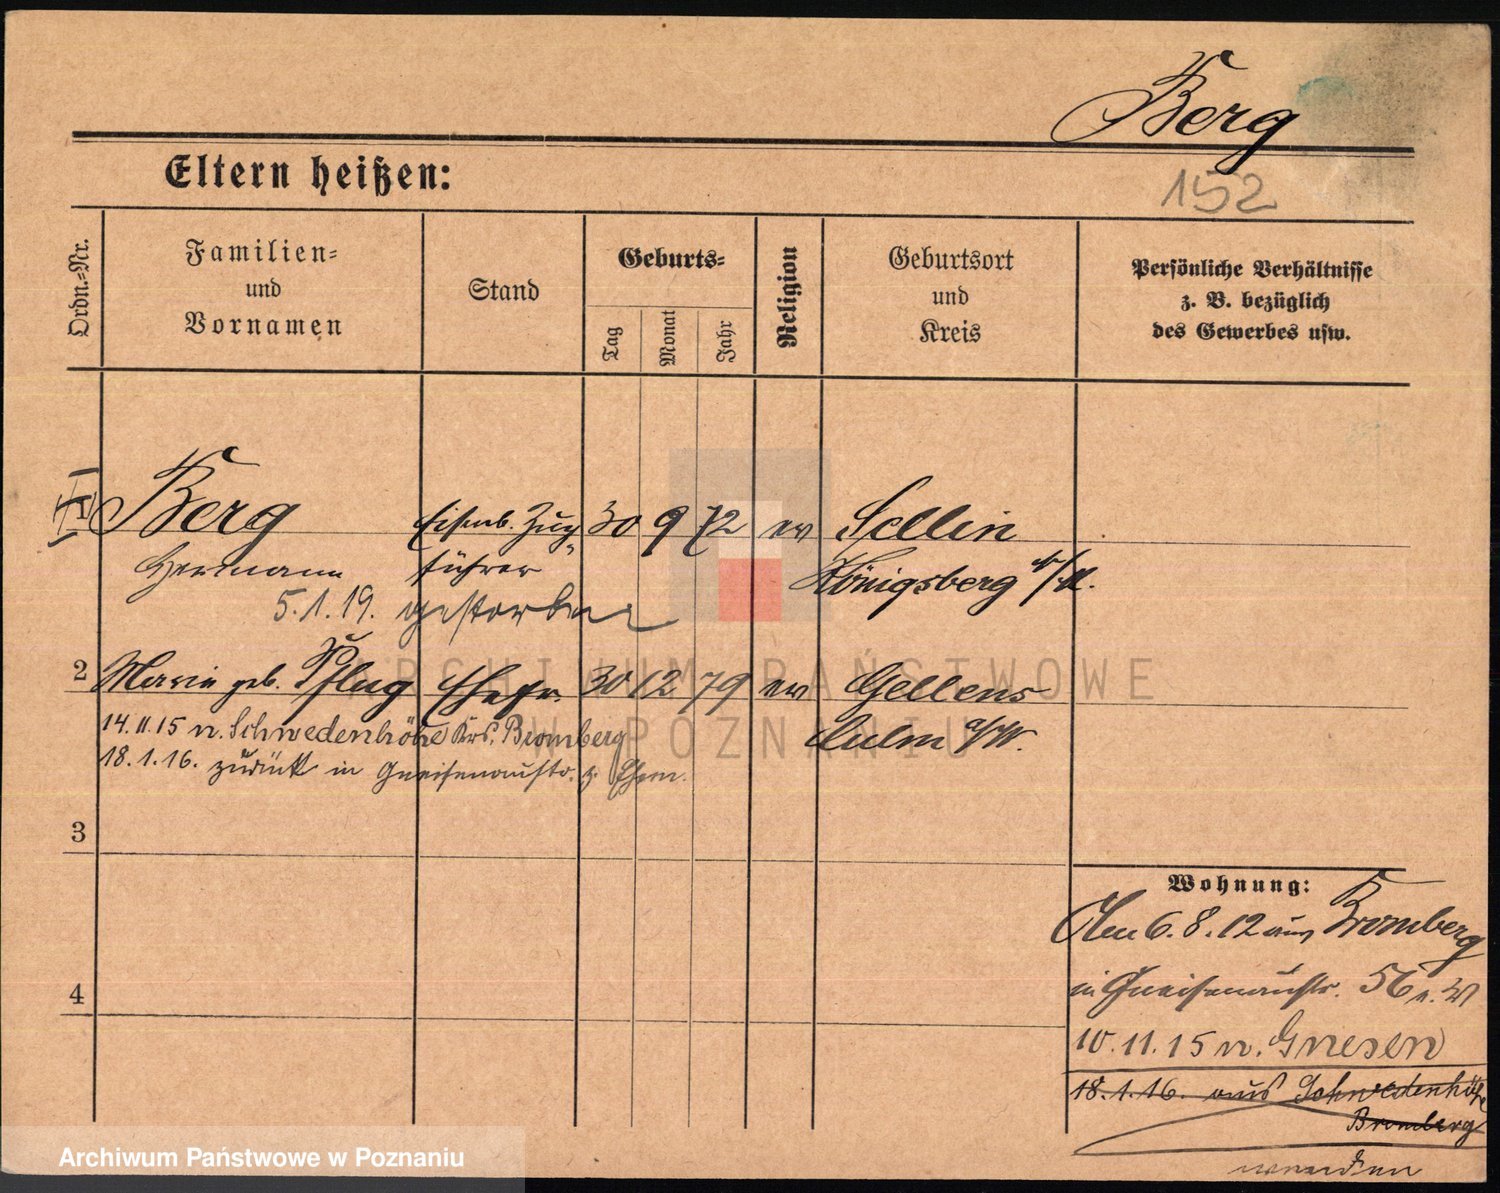 Berg
Eltern heißen:
152
Ordn.-Nr.
Familien-
und
Vornamen
Stand
Geburts-
Tag
Monat
Jahr
Religion
Geburtsort
und
Kreis
Persönliche Verhältnisse
z. B. bezüglich
des Gewerbes usw.
Berg Eisenb. Zug 30 9 72 ev Sellin
Hermann führer Königsberg N/M.
5.1.19. gestorben
2 Marie geb. Pflug Ehefr. 30 12 79 ev Gellens
Culm a/W.
14.11.15 n. Schwedenhöhe Krs. Bromberg
18.1.16. zurück in Gneisenaustr. z. Ehem.
3
4
Wohnung:
Am 6.8.12 aus Bromberg
in Gneisenaustr. 56
10.11.15 n. Gnesen
18.1.16. aus Schwedenhöhe
Bromberg
ARCHIWUM PAŃSTWOWE
W POZNANIU
Archiwum Państwowe w Poznaniu